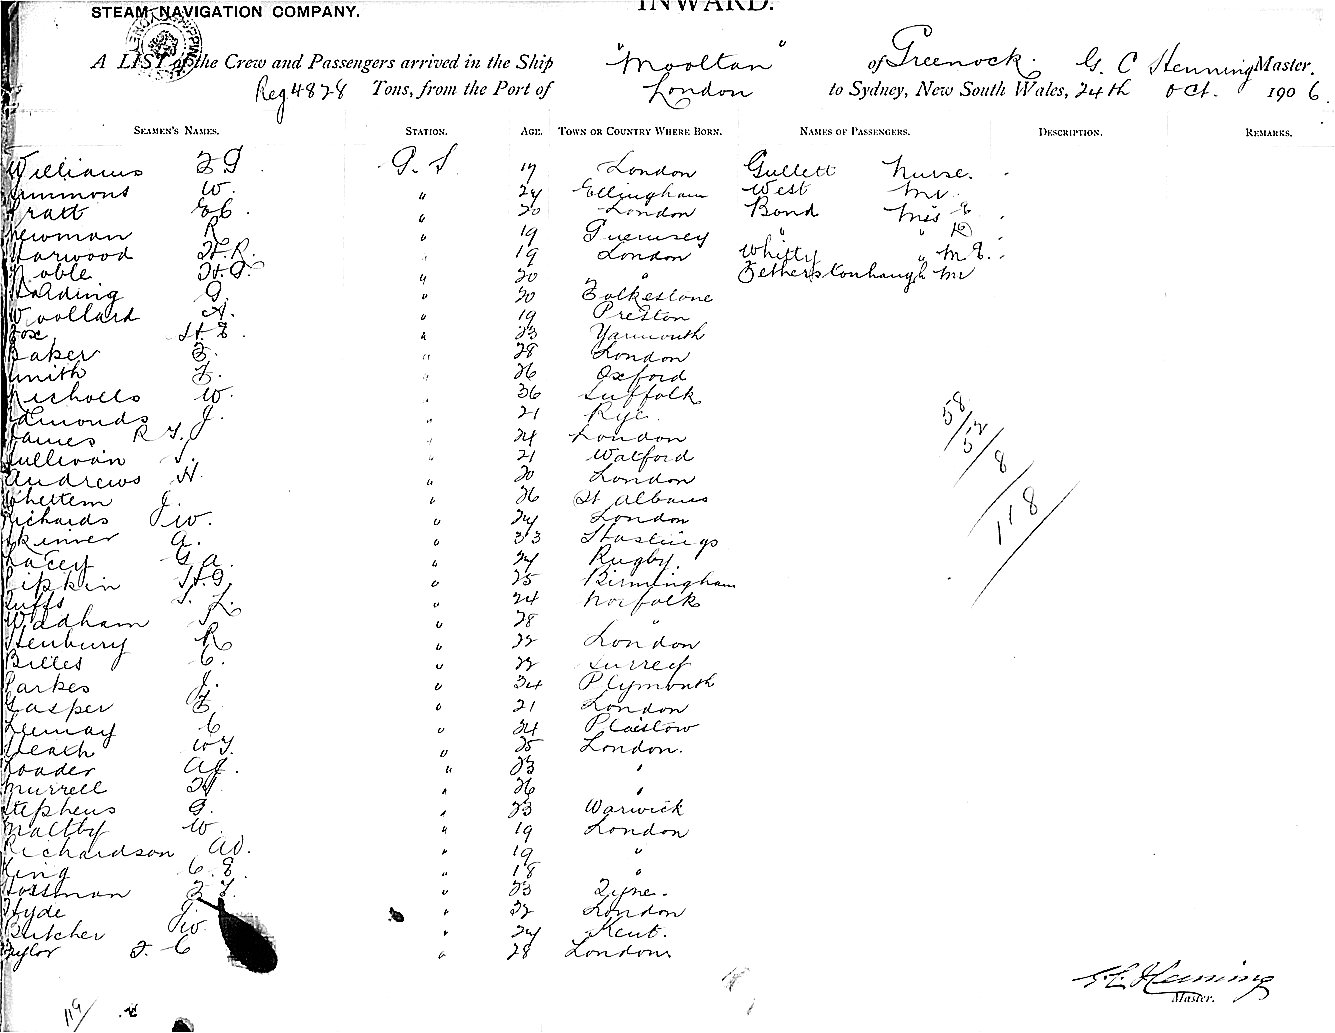 INWARD.
STEAM NAVIGATION COMPANY.
A LIST of the Crew and Passengers arrived in the Ship "Mooltan" of Greenock. G. C Henning Master.
Reg 4828 Tons, from the Port of London to Sydney, New South Wales, 24th Oct. 1906.
SEAMEN'S NAMES. STATION. AGE. TOWN OR COUNTRY WHERE BORN. NAMES OF PASSENGERS. DESCRIPTION. REMARKS.
Williams F G G. S. 19 London Gullett Nurse.
Simmons W. " 24 Ellingham West Mr.
Pratt E C. " 20 London Bond Miss E
Newman R " 19 Guernsey " " D
Harwood H. R. " 19 London Whitty " M E.
Noble H. G. " 20 " Fetherstonhaugh Mr
Harding G. " 20 Folkestone
Woollard A. " 19 Preston
Fox H. E. " 23 Yarmouth
Baker F. " 28 London
Smith F. " 26 Oxford
Nicholls W. " 36 Suffolk
Edmonds J. " 21 Rye.
James R T. " 24 London
Sullivan T. " 21 Watford
Andrews H. " 20 London
J. " 26 St Albans
Richards J W. " 24 London
Skinner A. " 33 Hastings
Lacey G A. " 24 Rugby.
Pipkin H. G. " 25 Birmingham
Tuffs S. L. " 24 Norfolk
Wadham " 28 "
Henbury R " 22 London
Billes C. " 22 Surrey
Parkes J. " 34 Plymouth
Gasper F. " 21 London
Lemay C " 24 Plaistow
Heath W T. " 25 London.
Loader A J. " 23 "
Murrell H " 26 "
Stephens G. " 23 Warwick
Maltby W. " 19 London
Richardson A D. " 19 "
King C. E. " 18 "
Hoffman F T. " 23 Tyne.
Hyde J W. " 32 London
Butcher " 24 Kent.
Taylor F. C " 28 London
58/
52/
8/
118/
G. C. Henning
Master.
119/